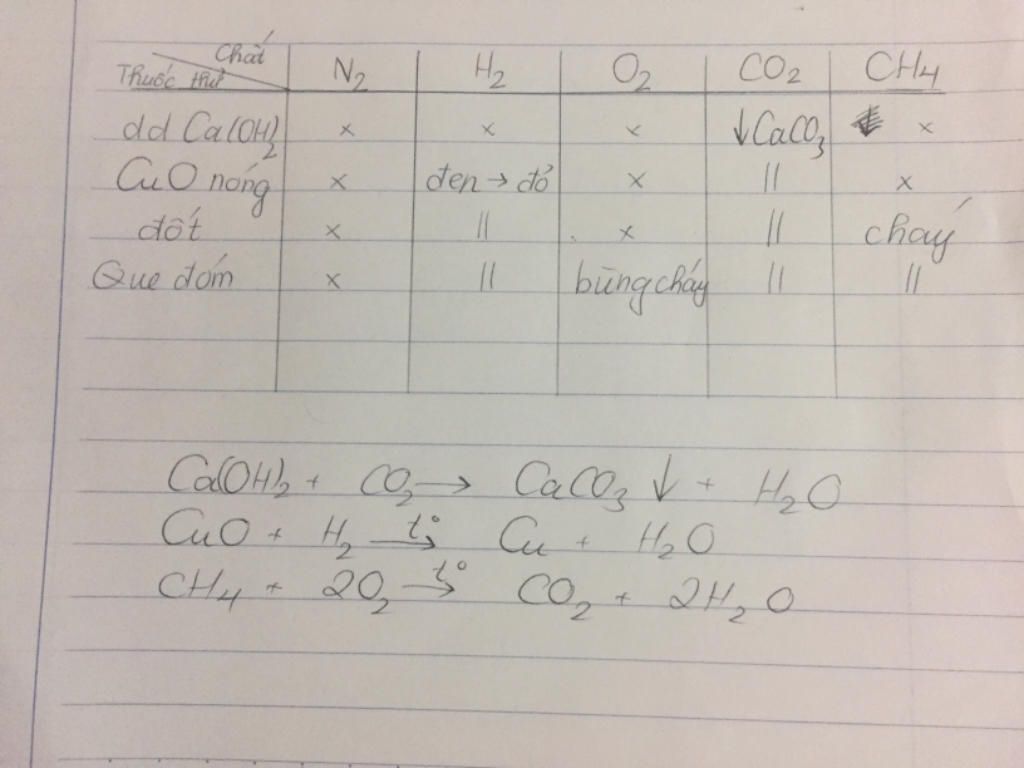 Chất
Thuốc thử N2 H2 O2 CO2 CH4
dd Ca(OH)2 × × × ↓CaCO3 ×
CuO nóng × đen → đỏ × || ×
đốt × || × || cháy
Que đóm × || bùng cháy || ||
Ca(OH)2 + CO2 → CaCO3 ↓ + H2O
CuO + H2 t°→ Cu + H2O
CH4 + 2O2 t°→ CO2 + 2H2O